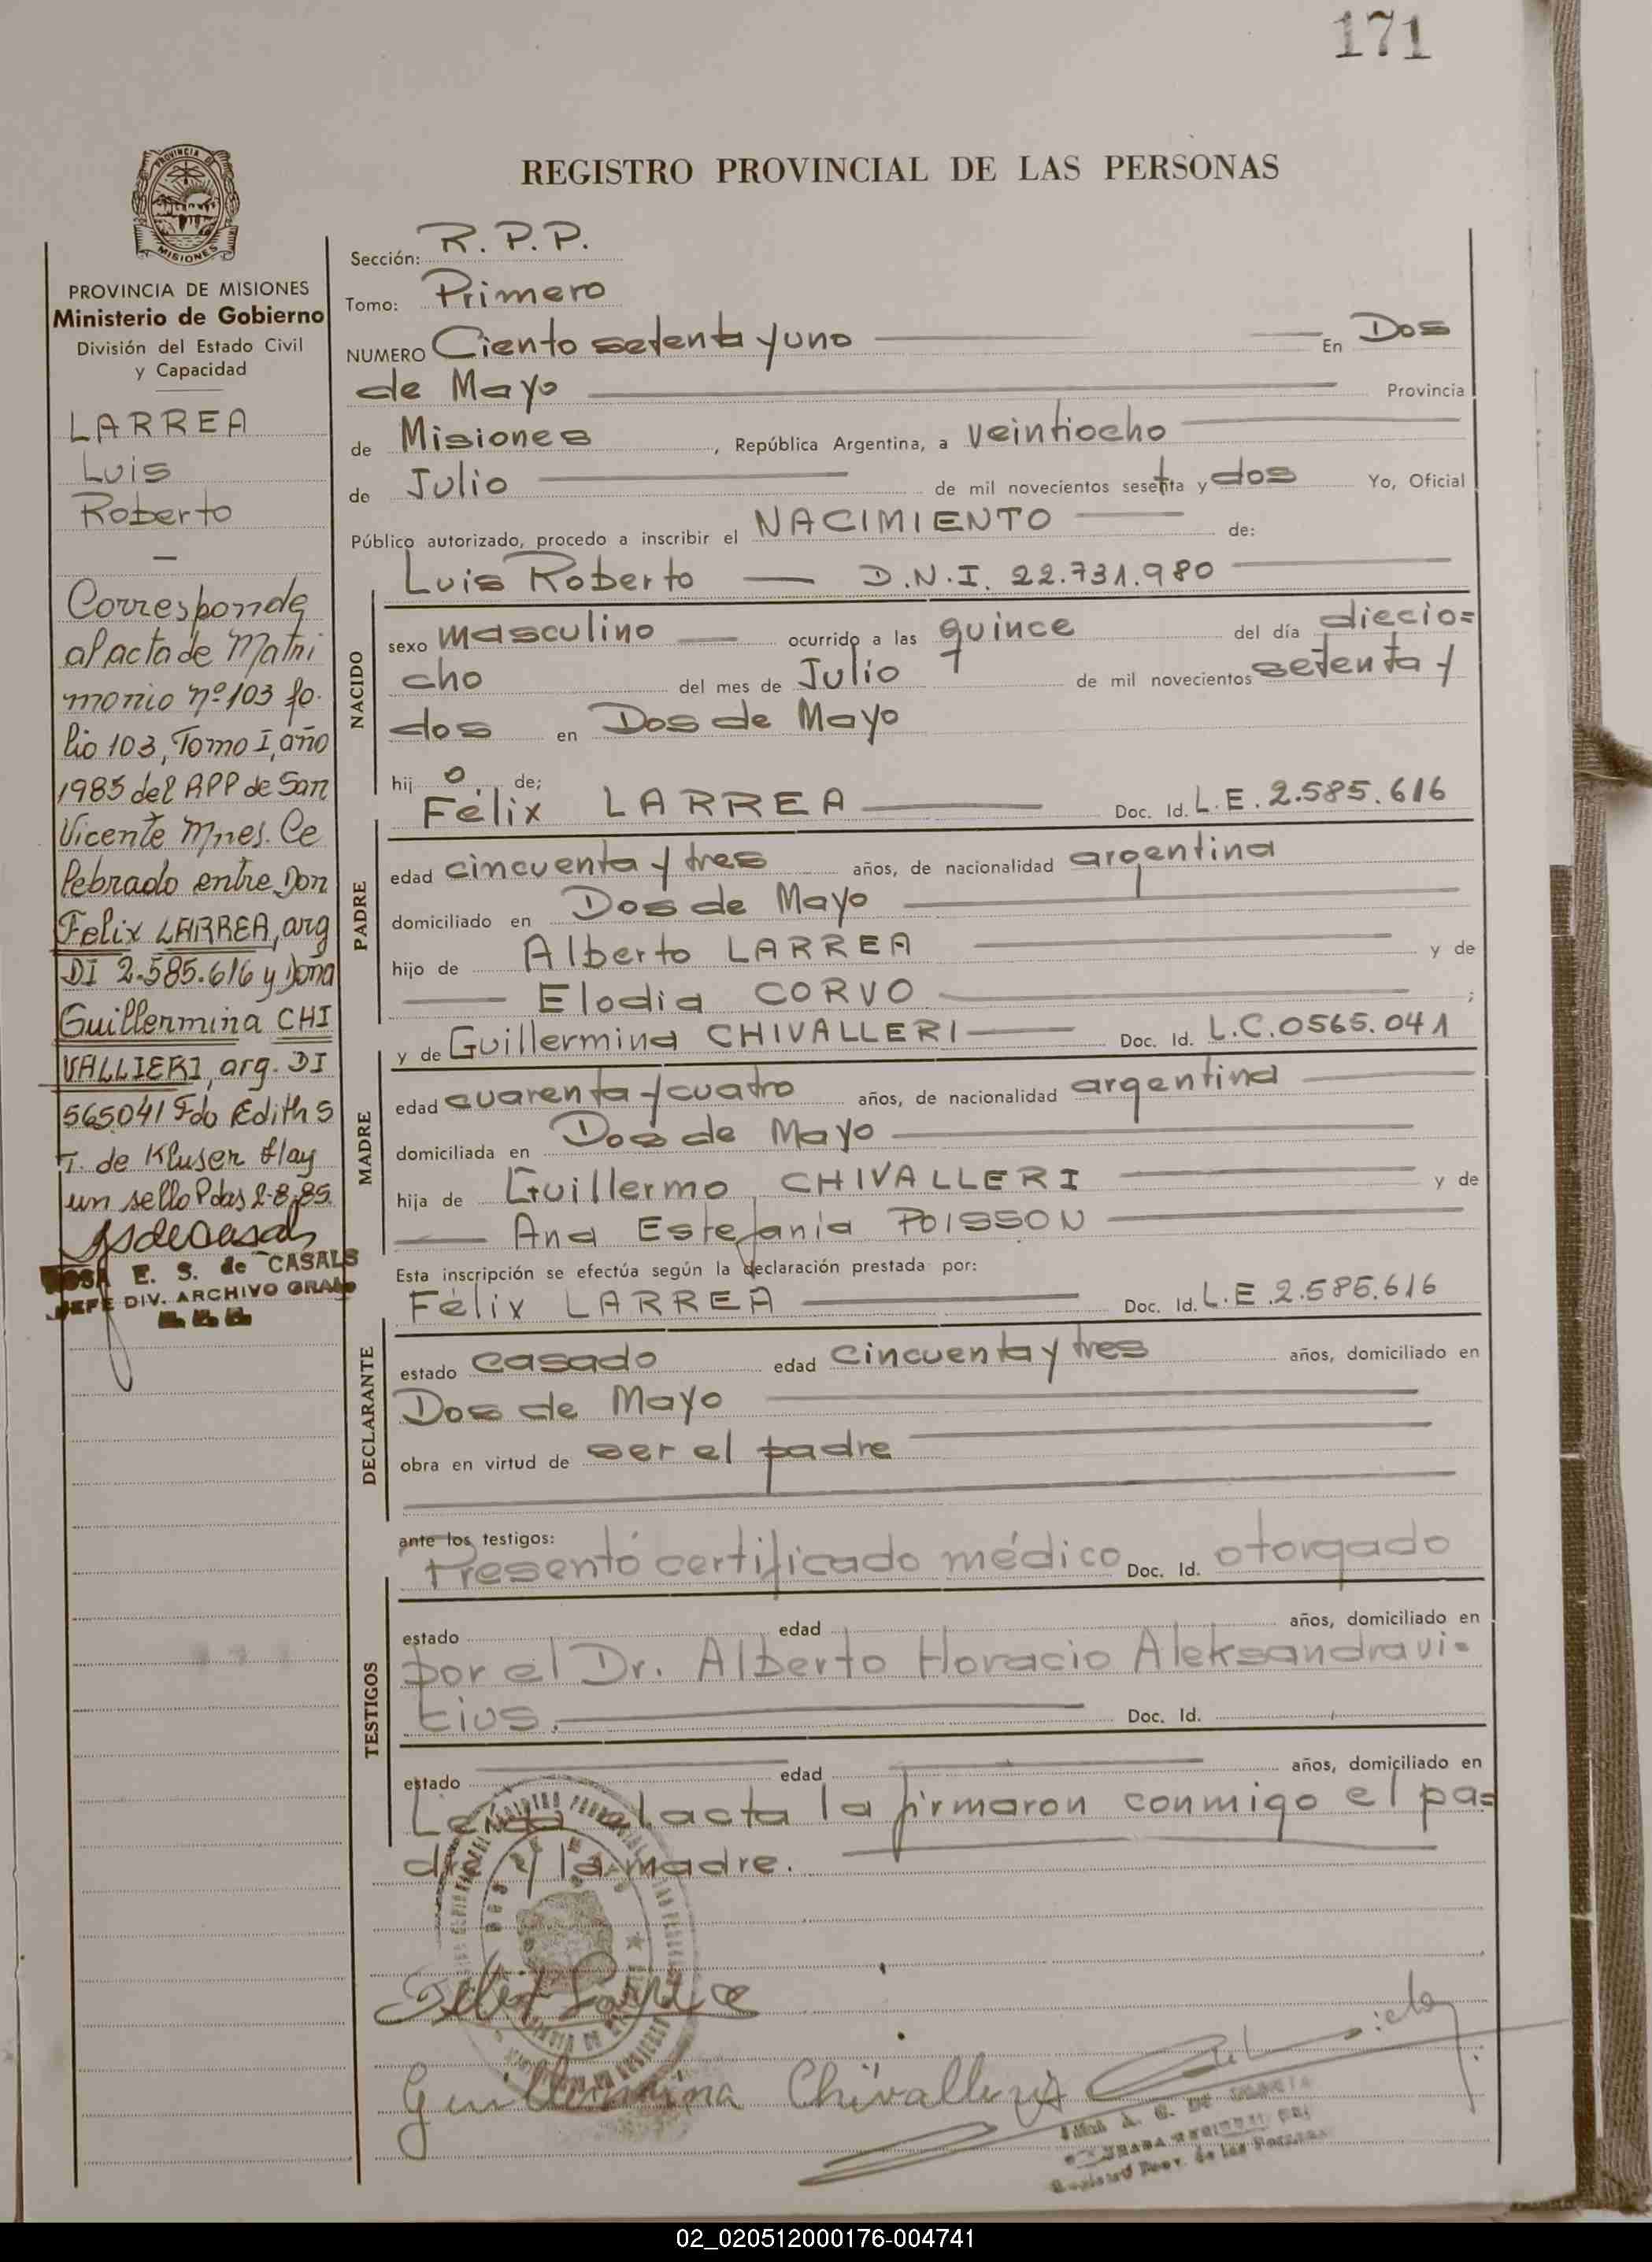 171
PROVINCIA DE
MISIONES
REGISTRO PROVINCIAL DE LAS PERSONAS
PROVINCIA DE MISIONES
Ministerio de Gobierno
División del Estado Civil
y Capacidad
LARREA
Luis
Roberto
Corresponde
al acta de Matri
monio nº 103 fo-
lio 103, Tomo I, año
1985 del RPP de San
Vicente Mnes. Ce
lebrado entre Don
Felix LARREA, arg
DI 2.585.616 y Dona
Guillermina CHI
VALLIERI, arg. DI
565041 Fdo Edith S
T. de Kluser Hay
un sello Pdas 2-8-85.
ROSA E. S. de CASALS
JEFE DIV. ARCHIVO GRAL
Sección: R. P. P.
Tomo: Primero
NUMERO Ciento setenta y uno En Dos
de Mayo Provincia
de Misiones, República Argentina, a veintiocho
de Julio de mil novecientos setenta y dos Yo, Oficial
Público autorizado, procedo a inscribir el NACIMIENTO de:
Luis Roberto — D.N.I. 22.731.980
NACIDO
sexo masculino ocurrido a las quince del día diecio=
cho del mes de Julio de mil novecientos setenta y
dos en Dos de Mayo
hijo de;
Félix LARREA Doc. Id. L.E. 2.585.616
PADRE
edad cincuenta y tres años, de nacionalidad argentina
domiciliado en Dos de Mayo
hijo de Alberto LARREA y de
Elodia CORVO ;
y de Guillermina CHIVALLERI Doc. Id. L.C. 0565.041
MADRE
edad cuarenta y cuatro años, de nacionalidad argentina
domiciliada en Dos de Mayo
hija de Guillermo CHIVALLERI y de
Ana Estefanía POISSON
Esta inscripción se efectúa según la declaración prestada por:
Félix LARREA Doc. Id. L.E. 2.585.616
DECLARANTE
estado casado edad cincuenta y tres años, domiciliado en
Dos de Mayo
obra en virtud de ser el padre
ante los testigos:
Presentó certificado médico Doc. Id. otorgado
TESTIGOS
estado edad años, domiciliado en
por el Dr. Alberto Horacio Aleksandravi=
cius. Doc. Id.
estado edad años, domiciliado en
Leída el acta la firmaron conmigo el pa=
dre y la madre.
Felix Larrea
Guillermina Chivalleri
02_020512000176-004741